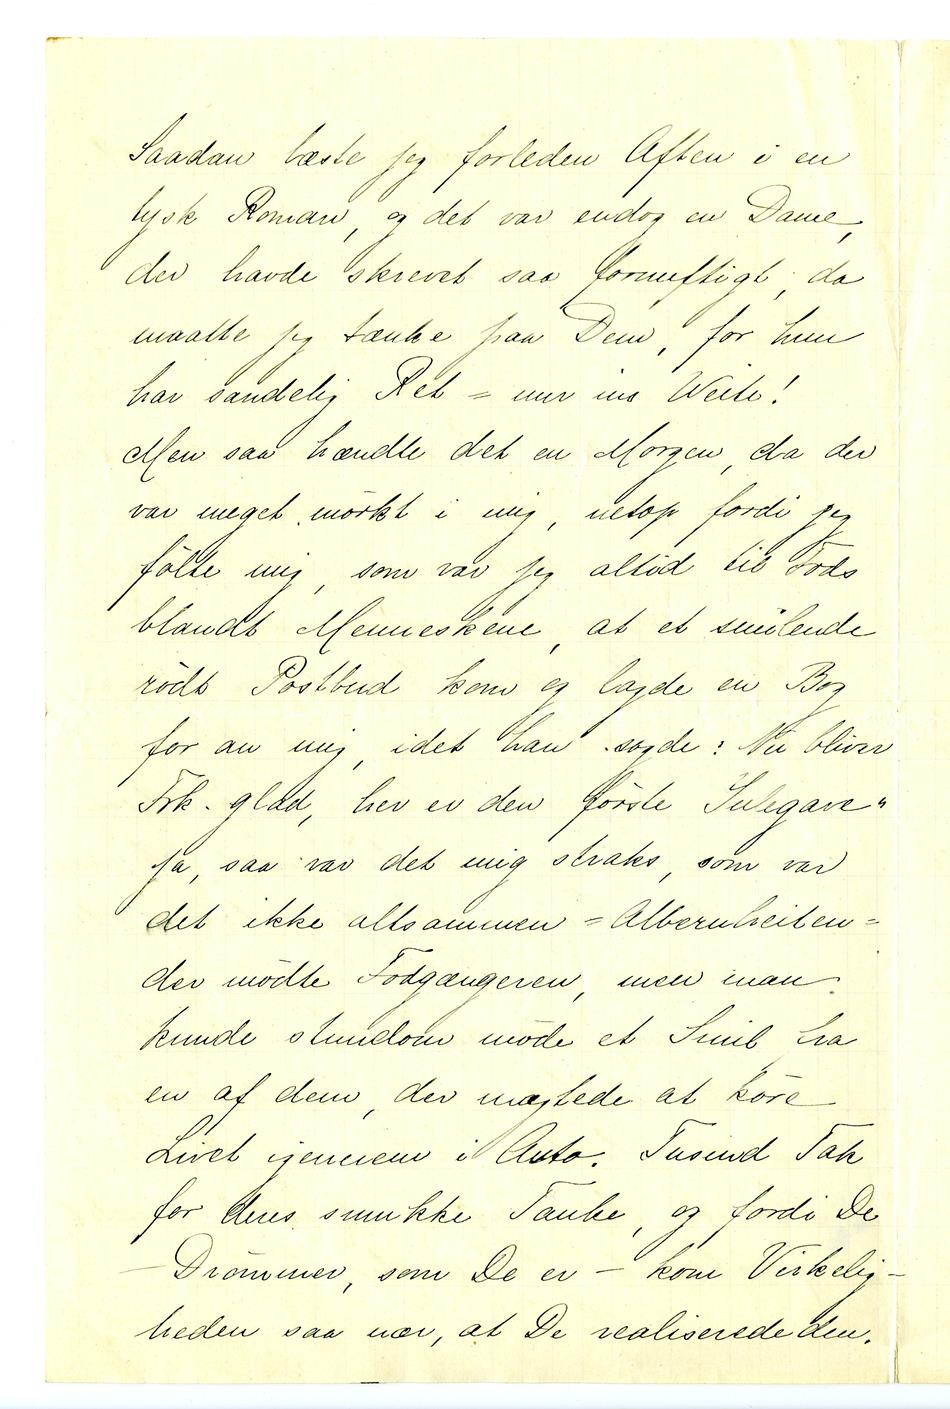 Saadan læste jeg forleden Aften i en
tysk Roman, og det var endog en Dame,
der havde skrevet saa fornuftigt, da
maatte jeg tænke paa Dem, for hun
har sandelig Ret = nur ins Weite!
Men saa hændte det en Morgen, da der
var meget mörkt i mig, netop fordi jeg
fölte mig, som var jeg altid til Fods
blandt Menneskene, at et smilende
rödt Postbud kom og lagde en Bog
for an mig, idet han sagde: Nu bliver
Frk. glad, her er den förste Julegave"
Ja, saa var det mig straks, som var
det ikke altsammen = Albernheiten =
der mödte Fodgængeren, men man
kunde stundom möde et Smil fra
en af dem, der mægtede at köre
Livet igennem i Auto. Tusind Tak
for deres smukke Tanke, og fordi De
- Drömmer, som De er - kom Virkelig-
heden saa nær, at De realiserede den.